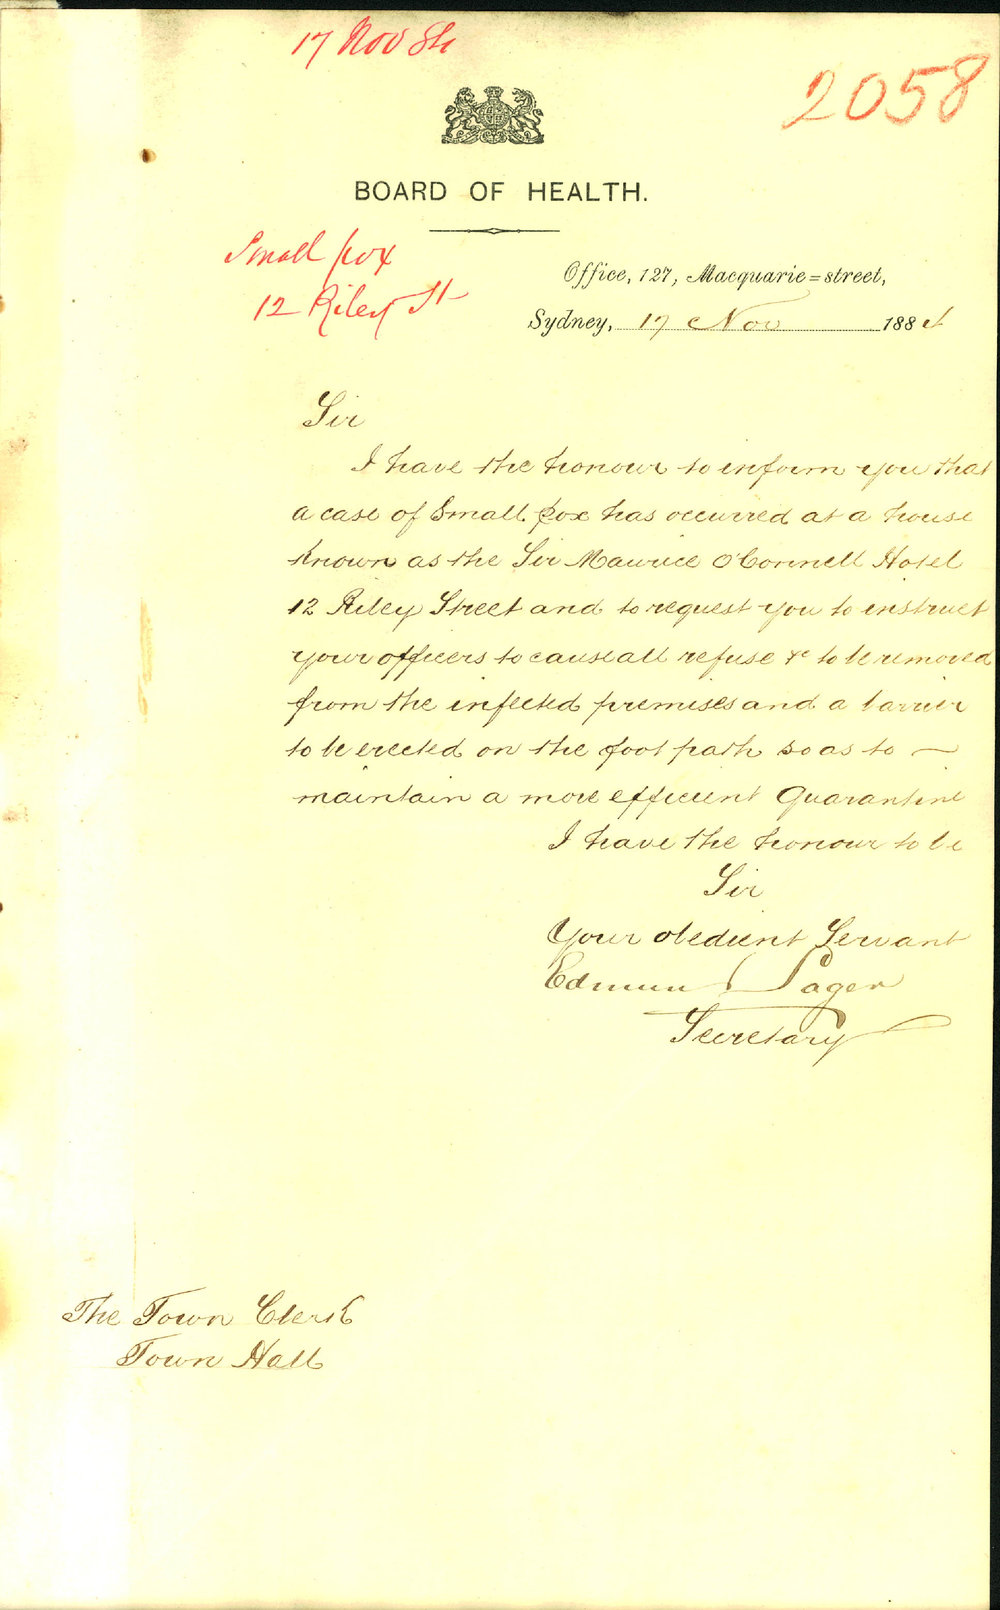 17 Nov 84
2058
BOARD OF HEALTH.
Small pox
12 Riley St
Office, 127, Macquarie=street,
Sydney, 17 Nov 1884
Sir
I have the honour to inform you that
a case of Small pox has occurred at a house
known as the Sir Maurice O'Connell Hotel
12 Riley Street and to request you to instruct
your officers to cause all refuse &c to be removed
from the infected premises and a barrier
to be erected on the foot path so as to
maintain a more efficient Quarantine
I have the honour to be
Sir
Your obedient Servant
Edmund Sager
Secretary
The Town Clerk
Town Hall